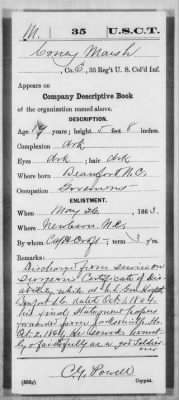 M. | 35 | U.S.C.T.
Coney Marsh
, Co. E, 35 Reg't U. S. Col'd Inf.
Appears on
Company Descriptive Book
of the organization named above.
DESCRIPTION.
Age 19 years; height 5 feet 8 inches.
Complexion drk
Eyes drk; hair drk
Where born Beaufort N.C.
Occupation
ENLISTMENT.
When May 26, 1863.
Where Newbern N.C.
By whom Capt. ; term 3 y'rs.
Remarks:
Discharge from service on
Surgeons Certificate of Dis-
ability while at U.S. Gen Hosp
Beaufort S.C. dated Oct 1 1864
his final Statement papers
forwarded from Jacksonville Fla.
Oct. 2, 1864. He served honest-
ly & faithfully as a good Soldier
C.G. Powell
Copyist.